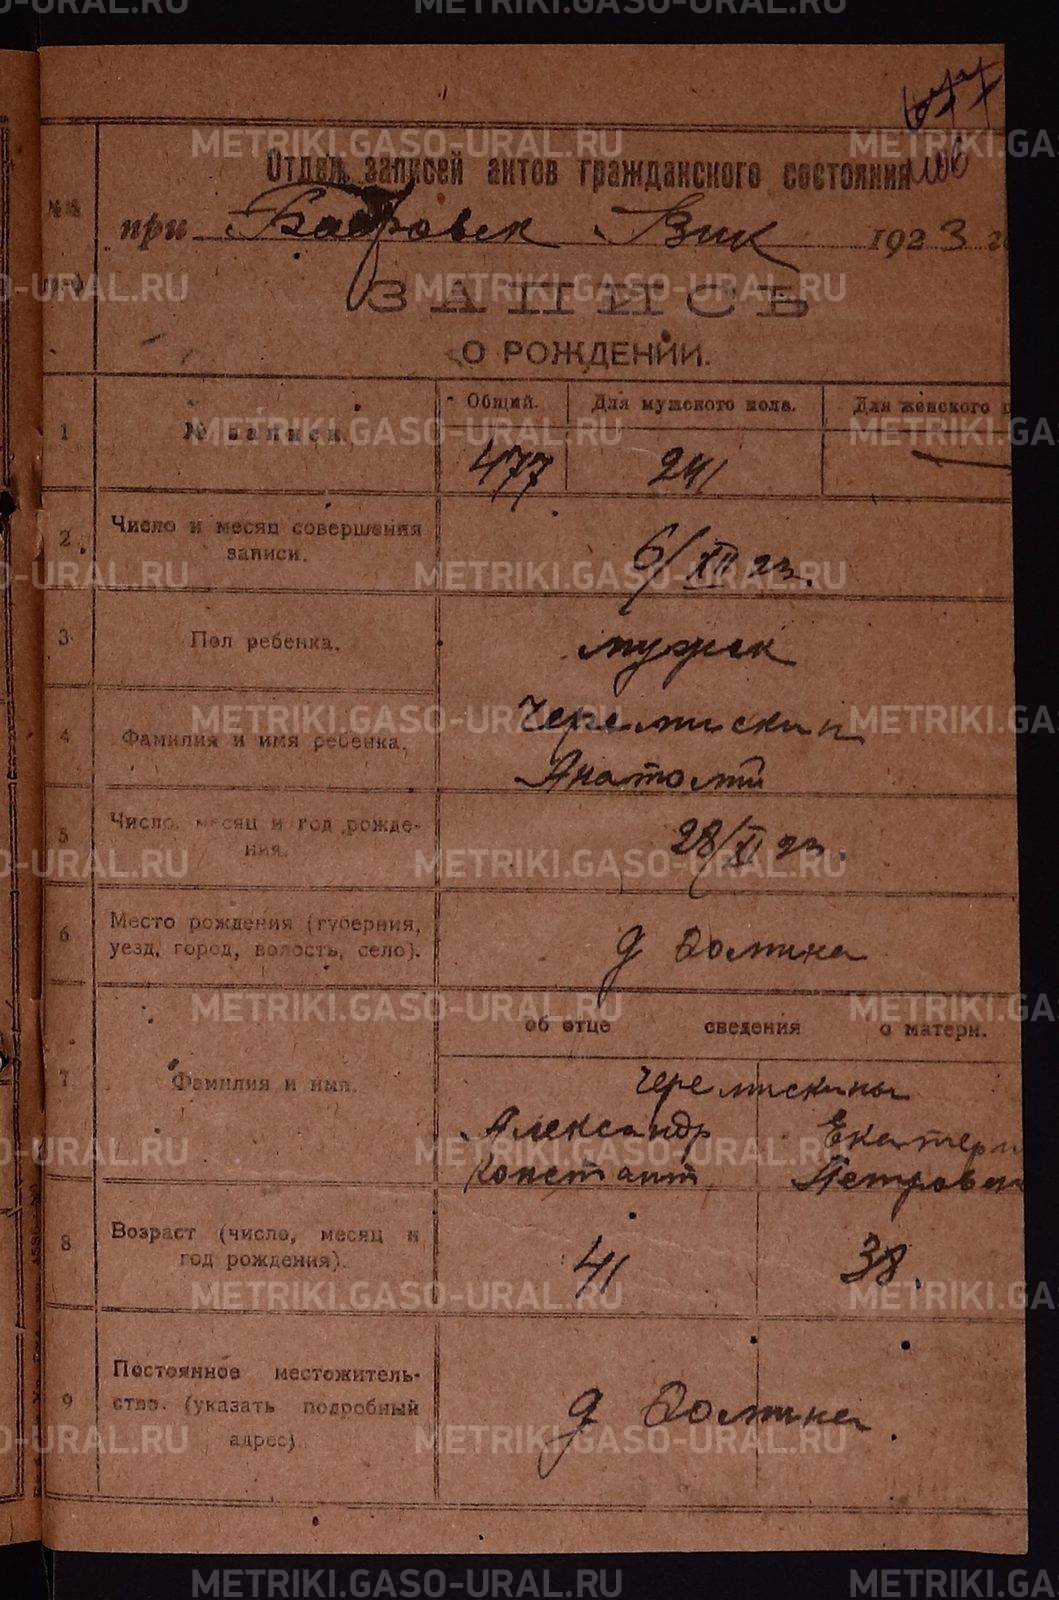 677
1106
Отдел записей актов гражданского состояния
при Вик 1923 г
ЗАПИСЬ
О РОЖДЕНИИ.
1 № записи. Общий. Для мужского пола. Для женского п
477 241 —
2. Число и месяц совершения
записи.
6/XII 23.
3 Пол ребенка. мужск
4 Фамилия и имя ребенка. Черемискин
Анатолий
5 Число, месяц и год рожде-
ния.
28/XI 23.
6 Место рождения (губерния,
уезд, город, волость, село).
д Долина
об отце сведения о матери.
7 Фамилия и имя. Черемискины
Александр Екатери
Констант Петровн
8 Возраст (число, месяц и
год рождения).
41 38.
9 Постоянное местожитель-
ство. (указать подробный
адрес)
д Долина.
METRIKI.GASO-URAL.RU